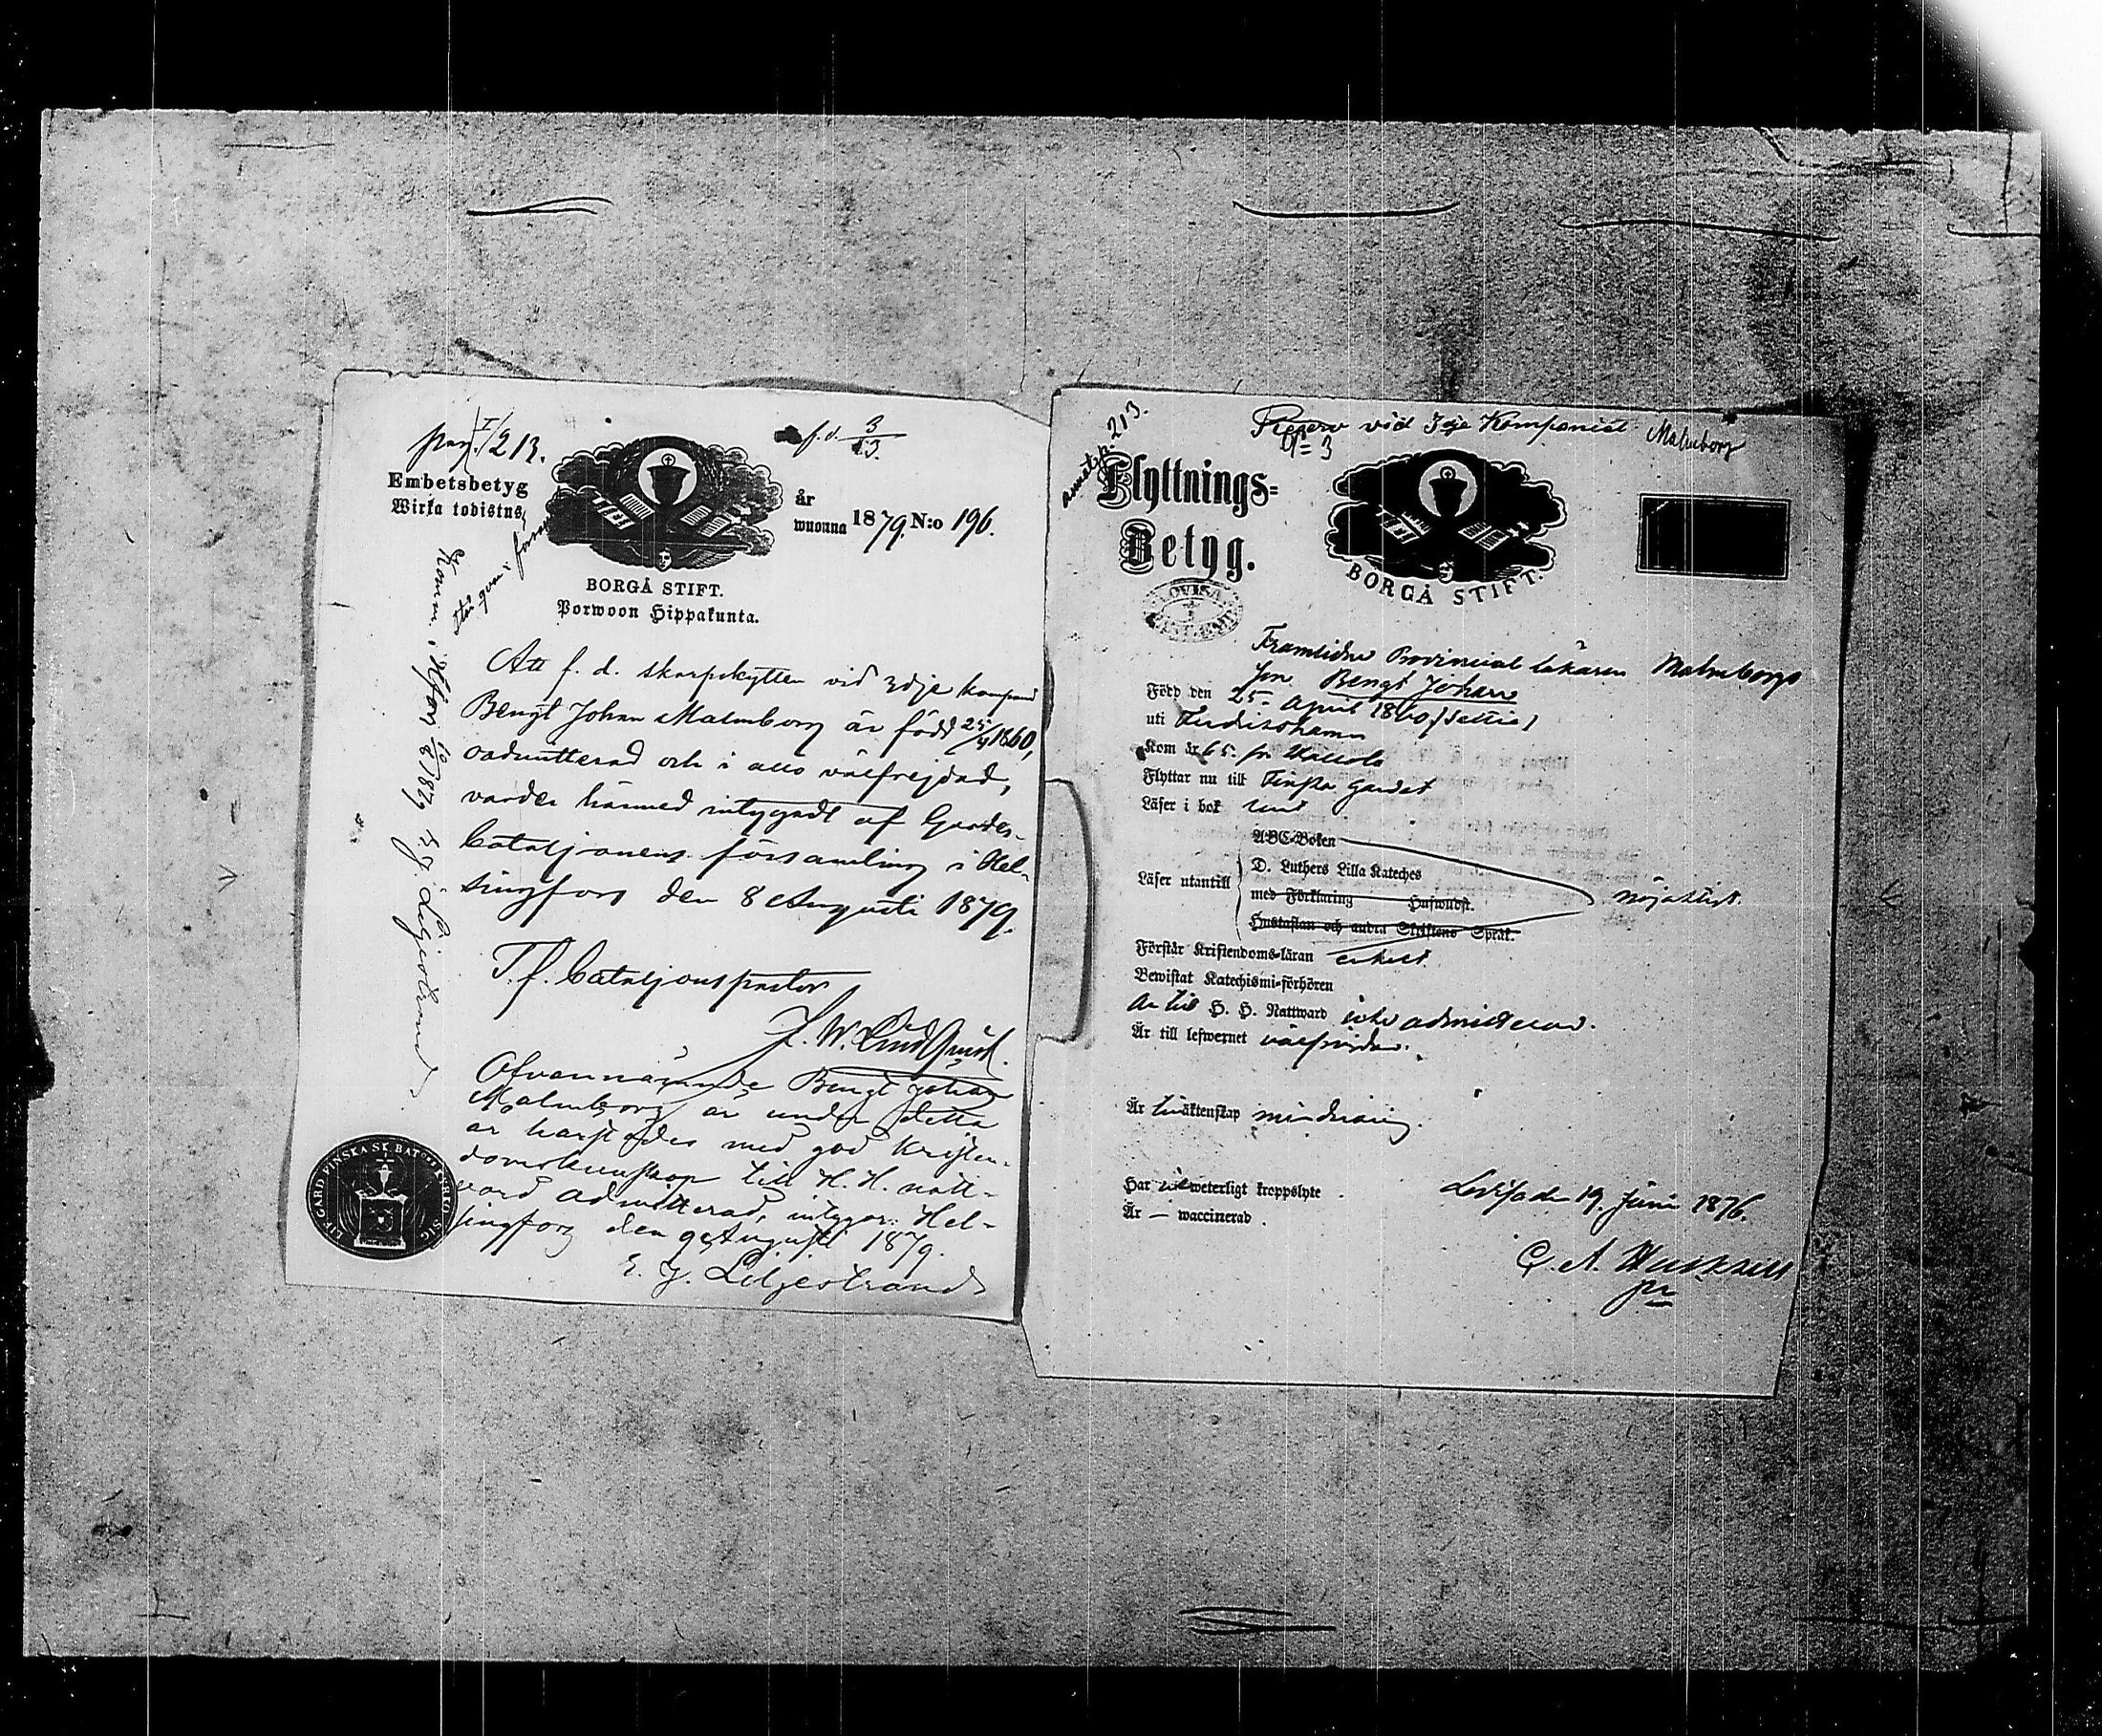 pag. I/213.
f. d. 3/13.
Embetsbetyg
Wirka todistus
år
wuonna 1879. N:o 196.
BORGÅ STIFT.
Porwoon Hippakunta.
Att f. d. skarpskytten vid 3dje
Bengt Johan Malmborg är född 25/4 1860,
oadmitterad och i allo välfrejdad,
varder härmed intygadt af Gardes-
bataljonens församling i Hel-
singfors den 8 Augusti 1879.
T. f. Bataljonspastor
K. W. Lindquist.
Ofvannämnde Bengt Johan
Malmborg är under detta
år härstädes med god Kristen-
domskunskap till H. H. natt-
vard admitterad, intygar: Hel-
singfors den 9 Augusti 1879.
E. J. Liljestrand
E. J. Liljestrand
213.
Reserv vid 3dje Kompaniet Malmborg
N= 3
Flyttnings=
Betyg.
BORGÅ STIFT.
LOVISA
Framlidne Provincial läkaren Malmborgs
son Bengt Johan
Född den 25. April 1860
uti Fredrikshamn
Kom år 65. fr.
Flyttar nu till Finska gardet
Läser i bok
ABC-Boken
D. Luthers Lilla Kateches
Läser utantill
med Förklaring Hufwudst.
nöjaktigt.
Hustaflan och andra Skriftens Språk.
Förstår Kristendoms-läran enkelt.
Bewistat Katechismi-förhören
Är till H. H. Nattward icke admitterad.
Är till lefwernet välfrejdad.
Är till äktenskap minderårig.
Har weterligt kroppslyte
Är — waccinerad.
Lovisa den 19. Juni 1876.